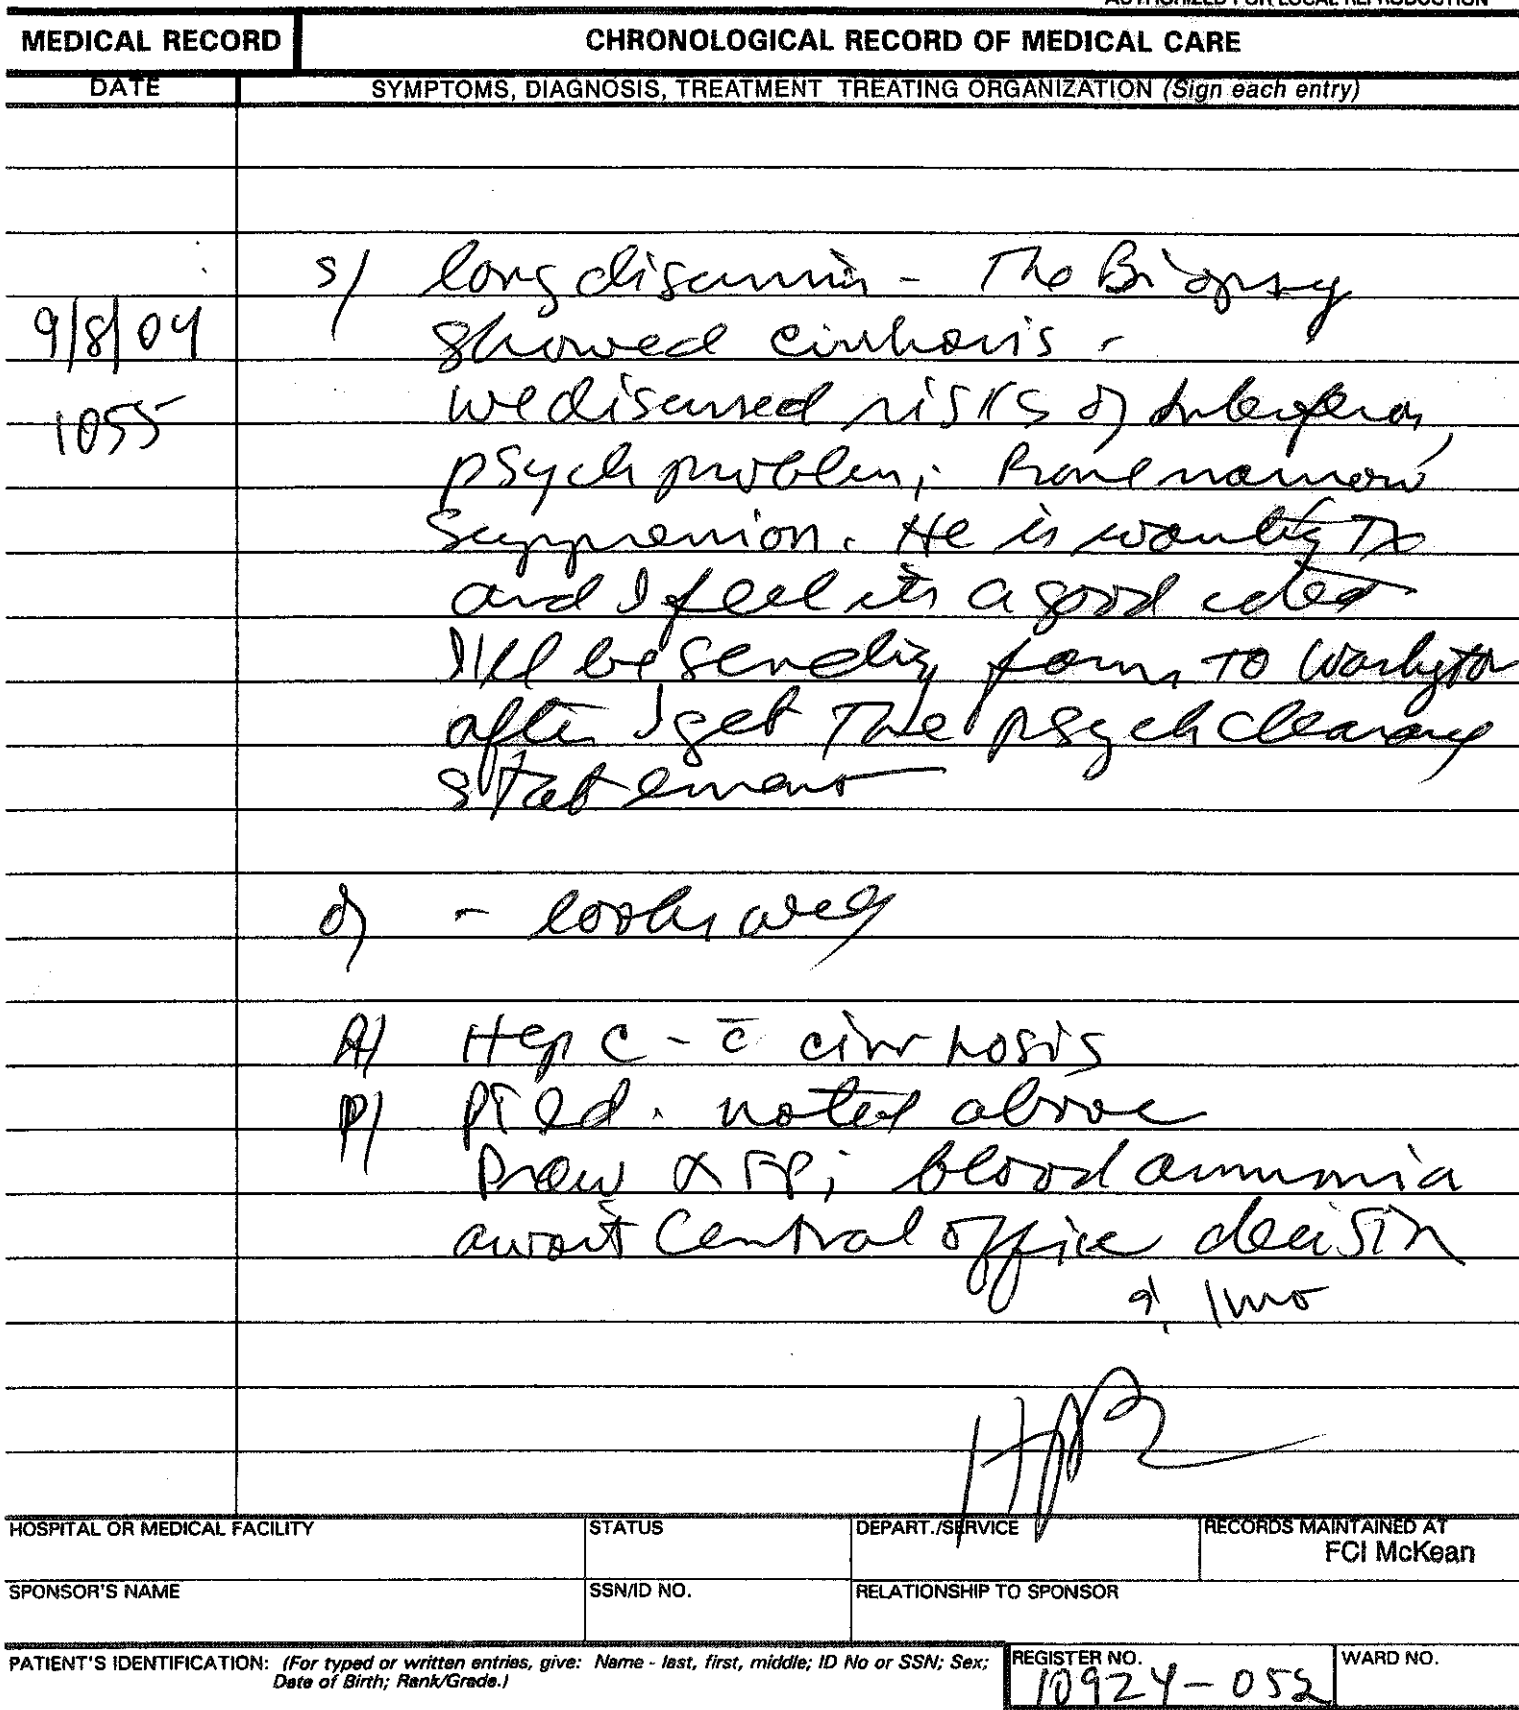 AUTHORIZED FOR LOCAL REPRODUCTION
MEDICAL RECORD
CHRONOLOGICAL RECORD OF MEDICAL CARE
DATE
SYMPTOMS, DIAGNOSIS, TREATMENT TREATING ORGANIZATION (Sign each entry)
s/ long discussion - The Biopsy
9/8/04 showed cirrhosis -
1055 we discussed risks of Interferon,
psych problem; Bone marrow
suppression. He is wanting Tx
and I feel its a good idea
I'll be sending form to Washington
after I get the psych clearance
statement
o) - looks well
A) Hep C - c̄ cirrhosis
P) pt ed. noted above
Draw αFP; blood ammonia
await Central office decision
1mo
HOSPITAL OR MEDICAL FACILITY
STATUS
DEPART./SERVICE
RECORDS MAINTAINED AT
FCI McKean
SPONSOR'S NAME
SSN/ID NO.
RELATIONSHIP TO SPONSOR
PATIENT'S IDENTIFICATION: (For typed or written entries, give: Name - last, first, middle; ID No or SSN; Sex;
Date of Birth; Rank/Grade.)
REGISTER NO.
10924-052
WARD NO.